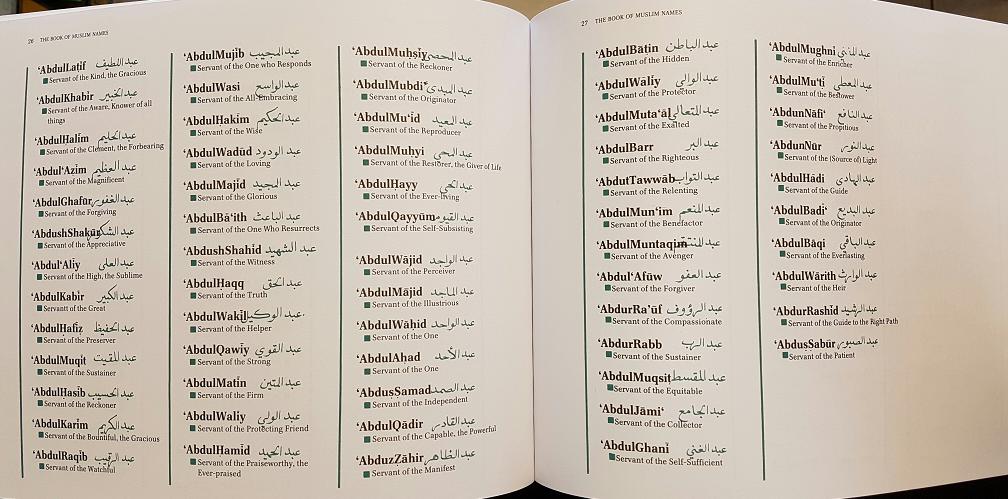 26 THE BOOK OF MUSLIM NAMES
‘AbdulLaṭīf عبد اللطيف
Servant of the Kind, the Gracious
‘AbdulKhabīr عبد الخبير
Servant of the Aware, Knower of all
things
‘AbdulḤalīm عبد الحليم
Servant of the Clement, the Forbearing
‘Abdul‘Azim عبد العظيم
Servant of the Magnificent
‘AbdulGhafūr عبد الغفور
Servant of the Forgiving
‘AbdushShakūr عبد الشكور
Servant of the Appreciative
‘Abdul‘Aliy عبد العلى
Servant of the High, the Sublime
‘AbdulKabīr عبد الكبير
Servant of the Great
‘AbdulHafiẓ عبد الحفيظ
Servant of the Preserver
‘AbdulMuqīt عبد المقيت
Servant of the Sustainer
‘AbdulḤasīb عبد الحسيب
Servant of the Reckoner
‘AbdulKarīm عبد الكريم
Servant of the Bountiful, the Gracious
‘AbdulRaqīb عبد الرقيب
Servant of the Watchful
‘AbdulMujīb عبد المجيب
Servant of the One who Responds
‘AbdulWasi عبد الواسع
Servant of the All-Embracing
‘AbdulḤakīm عبد الحكيم
Servant of the Wise
‘AbdulWadūd عبد الودود
Servant of the Loving
‘AbdulMajīd عبد المجيد
Servant of the Glorious
‘AbdulBā‘ith عبد الباعث
Servant of the One Who Resurrects
‘AbdushShahīd عبد الشهيد
Servant of the Witness
‘AbdulḤaqq عبد الحق
Servant of the Truth
‘AbdulWakīl عبد الوكيل
Servant of the Helper
‘AbdulQawīy عبد القوي
Servant of the Strong
‘AbdulMatīn عبد المتين
Servant of the Firm
‘AbdulWaliy عبد الولي
Servant of the Protecting Friend
‘AbdulḤamīd عبد الحميد
Servant of the Praiseworthy, the
Ever-praised
‘AbdulMuḥṣīy عبد المحصي
Servant of the Reckoner
‘AbdulMubdī’ عبد المبدي
Servant of the Originator
‘AbdulMu‘īd عبد المعيد
Servant of the Reproducer
‘AbdulMuhyi عبد المحي
Servant of the Restorer, the Giver of Life
‘AbdulḤayy عبد الحي
Servant of the Ever-living
‘AbdulQayyūm عبد القيوم
Servant of the Self-Subsisting
‘AbdulWājid عبد الواجد
Servant of the Perceiver
‘AbdulMājid عبد الماجد
Servant of the Illustrious
‘AbdulWāḥid عبد الواحد
Servant of the One
‘AbdulAḥad عبد الأحد
Servant of the One
‘AbdusṢamad عبد الصمد
Servant of the Independent
‘AbdulQādir عبد القادر
Servant of the Capable, the Powerful
‘AbduzẒāhir عبد الظاهر
Servant of the Manifest
27 THE BOOK OF MUSLIM NAMES
‘AbdulBāṭin عبد الباطن
Servant of the Hidden
‘AbdulWālīy عبد الوالي
Servant of the Protector
‘AbdulMuta‘āl عبد المتعالي
Servant of the Exalted
‘AbdulBarr عبد البر
Servant of the Righteous
‘AbdutTawwāb عبد التواب
Servant of the Relenting
‘AbdulMun‘im عبد المنعم
Servant of the Benefactor
‘AbdulMuntaqim عبد المنتقم
Servant of the Avenger
‘Abdul‘Afūw عبد العفو
Servant of the Forgiver
‘AbdurRa’ūf عبد الرؤوف
Servant of the Compassionate
‘AbdurRabb عبد الرب
Servant of the Sustainer
‘AbdulMuqsiṭ عبد المقسط
Servant of the Equitable
‘AbdulJāmi‘ عبد الجامع
Servant of the Collector
‘AbdulGhanī عبد الغني
Servant of the Self-Sufficient
‘AbdulMughni عبد المغني
Servant of the Enricher
‘AbdulMu‘ṭi عبد المعطي
Servant of the Bestower
‘AbdunNāfi‘ عبد النافع
Servant of the Propitious
‘AbdunNūr عبد النور
Servant of the (Source of) Light
‘AbdulHādi عبد الهادي
Servant of the Guide
‘AbdulBadī‘ عبد البديع
Servant of the Originator
‘AbdulBāqi عبد الباقي
Servant of the Everlasting
‘AbdulWārith عبد الوارث
Servant of the Heir
‘AbdurRashīd عبد الرشيد
Servant of the Guide to the Right Path
‘AbdusṢabūr عبد الصبور
Servant of the Patient